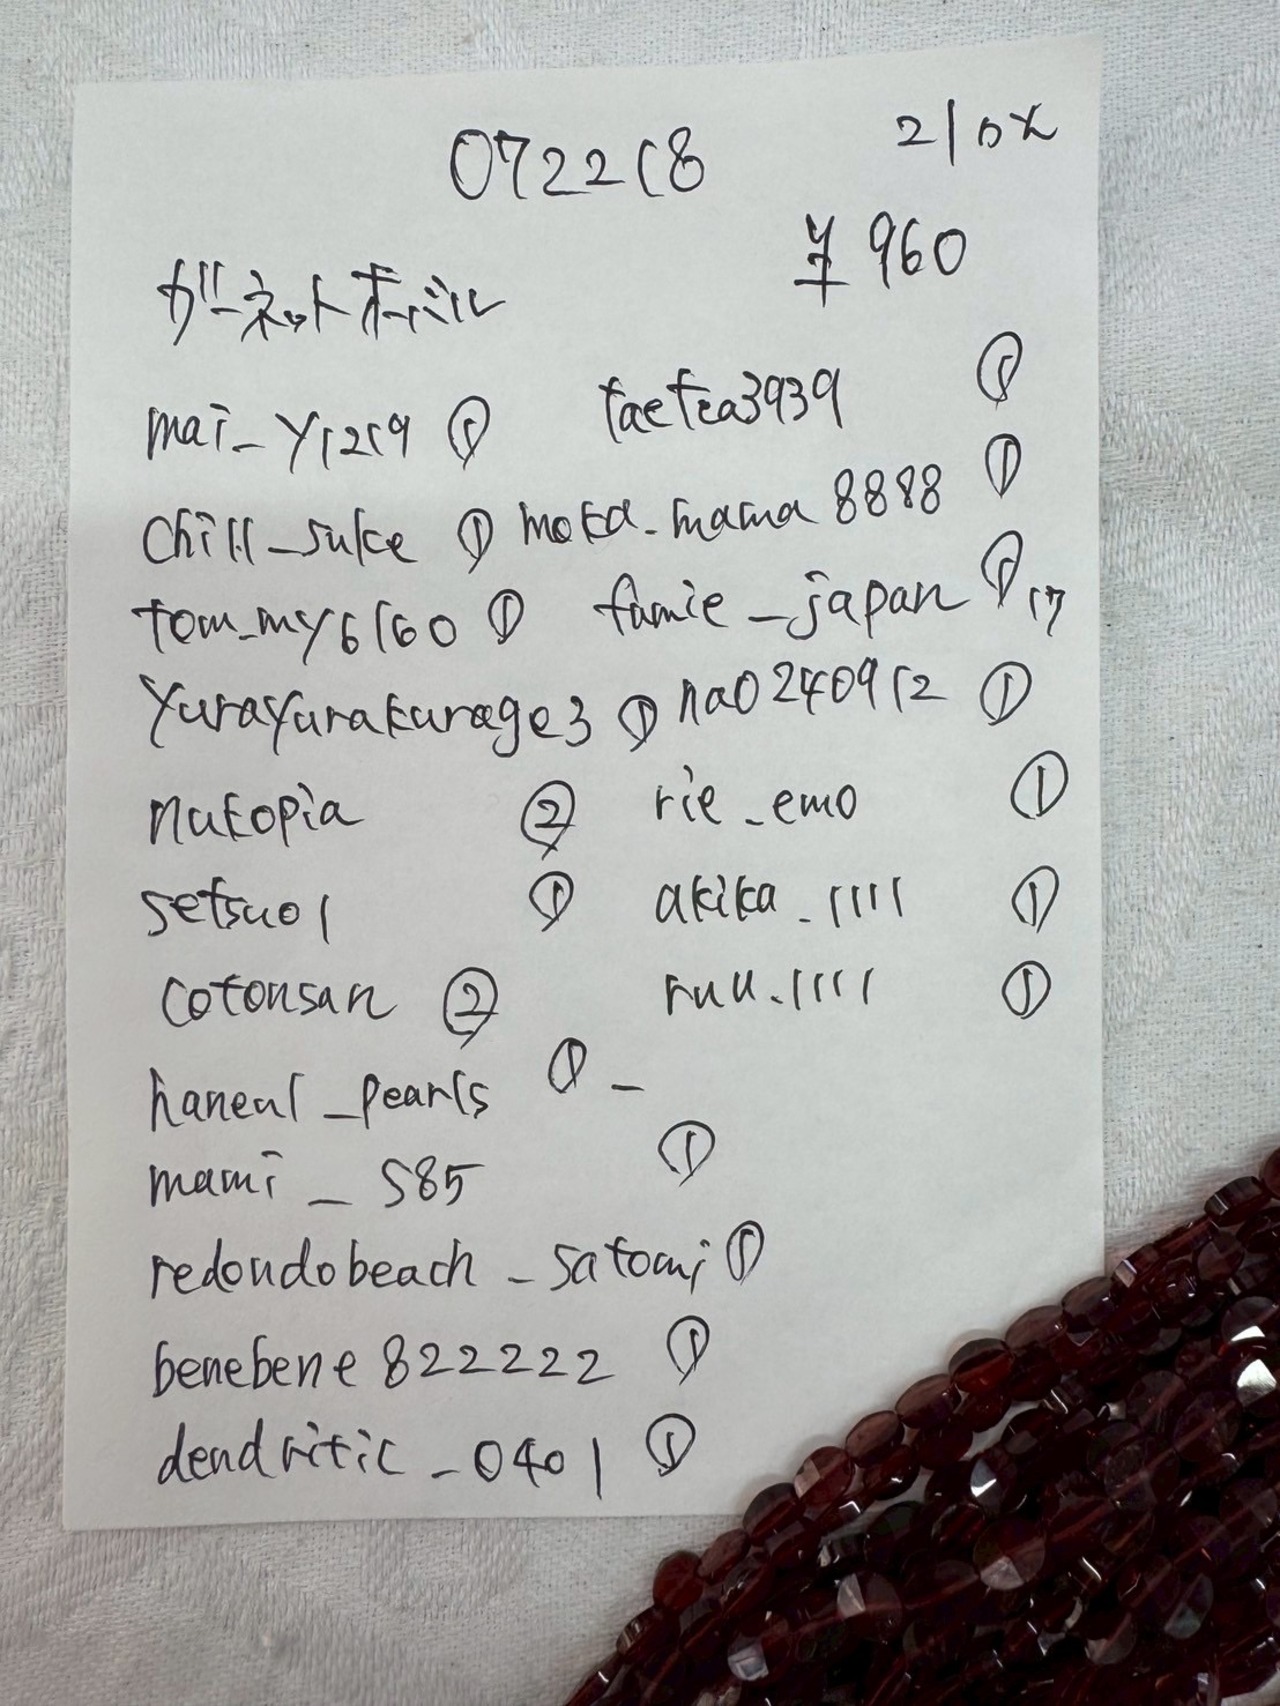 072218
21ロメ
¥960
ガーネットオーバル
mai_y1219 ① taetea3939 ①
chill_suke ① moka.mama8888 ①
tom_my6160 ① fumie_japan ① 17
yurayurakurage3 ① na0240912 ①
nukopia ② rie_emo ①
setsuo1 ① akika.1111 ①
cotonsan ② ruu.1111 ①
haneul_pearls ① -
mami_s85 ①
redondobeach_satomi ①
benebene822222 ①
dendritic_0401 ①